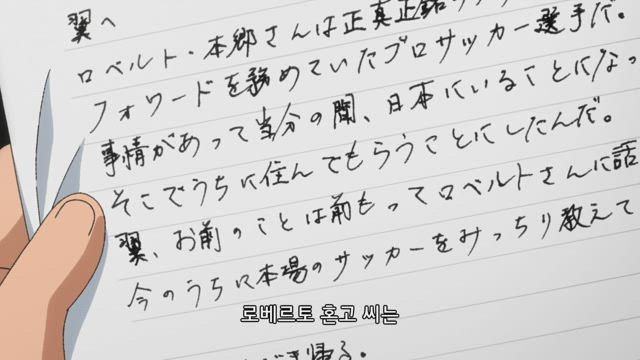 翼へ
ロベルト・本郷さんは正真正銘の
フォワードを務めていたプロサッカー選手だ。
事情があって当分の間、日本にいることになっ
そこでうちに住んでもらうことにしたんだ。
翼、お前のことは前もってロベルトさんに話
今のうちに本場のサッカーをみっちり教えて
로베르토 혼고 씨는
帰る。